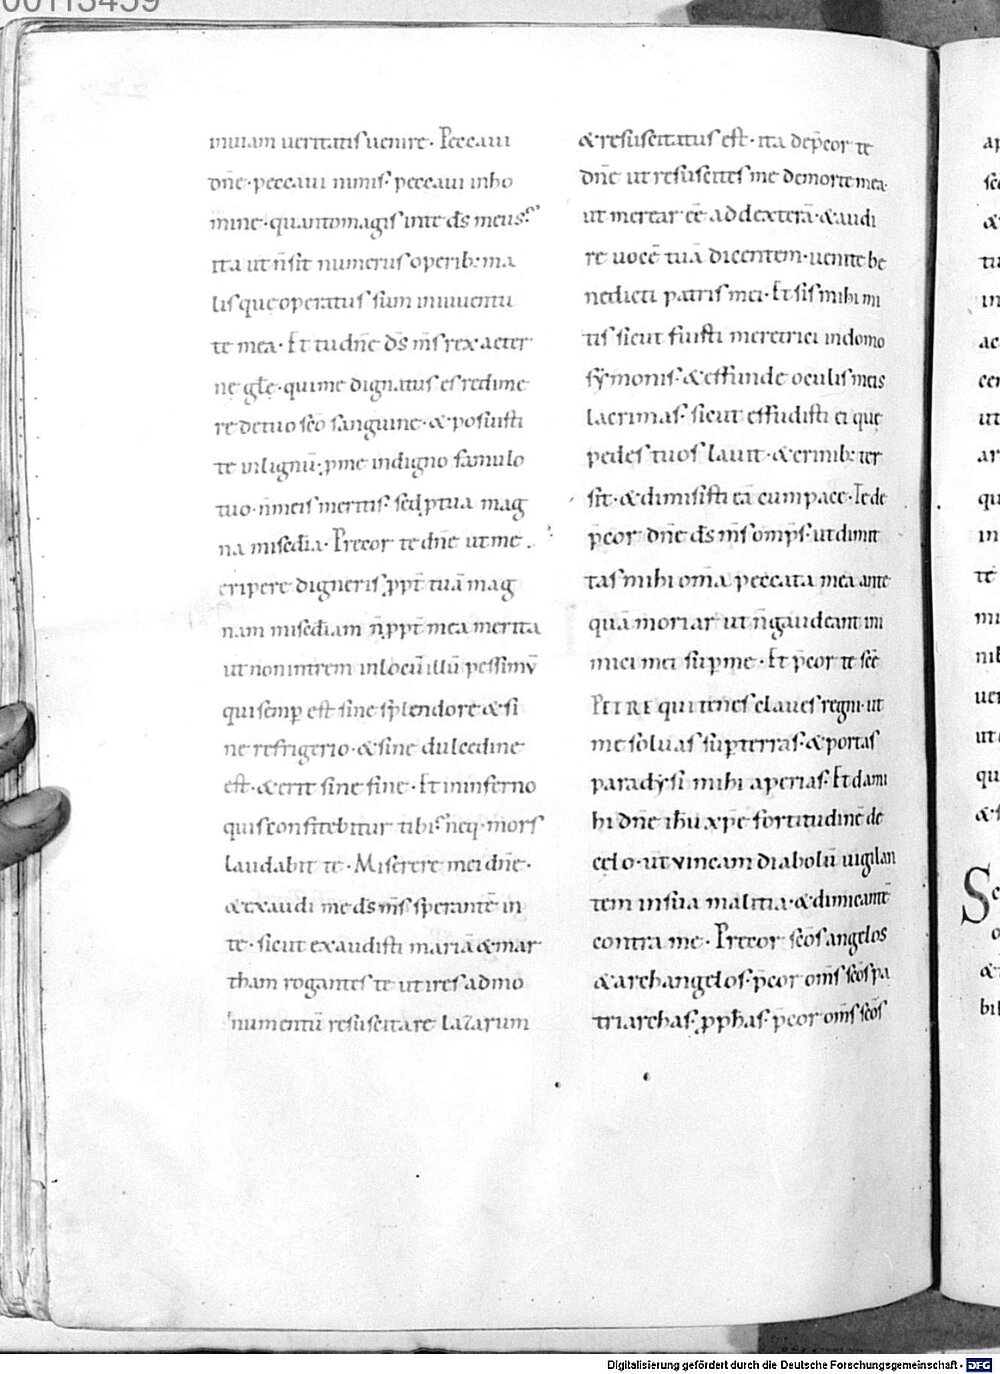 00113459
inuiam ueritatis uenire· Peccaui
dn̄e· peccaui nimis· peccaui inho
mine· quantomagis inte ds̄ meus.
ita ut n̄ sit numerus operib; ma
lis que operatus sum iniuuentu
te mea· Et tu dn̄e ds̄ m̄s rex aeter
ne gl̄e· quime dignatus es redime
re detuo sc̄o sanguine· & posuisti
te inlignū· ꝓme indigno famulo
tuo· n̄ meis meritis· sed ꝓ tua mag
na misedia· Precor te dn̄e ut me
eripere digneris ꝓpt̄ tuā mag
nam misediam n̄ ꝓpt̄ mea merita
ut non intrem inlocū illū pessimū
qui semꝑ est sine splendore & si
ne refrigerio· & sine dulcedine
est· & erit sine fine· Et ininferno
quis confitebitur tibi· neq· mors
laudabit te· Miserere mei dn̄e·
& exaudi me ds̄ m̄s sperantē in
te· sicut exaudisti mariā & mar
tham rogantes te ut ires ad mo
numentū resuscitare lazarum
& resuscitatus est· ita dep̄cor te
dn̄e ut resuscites me demorte mea·
ut merear eē ad dexterā· & audi
re uocē tuā dicentem· uenite be
nedicti patris mei· Et sis mihi mi
tis sicut fuisti meretrici indomo
sẏmonis· & effunde oculis meis
lacrimas· sicut effudisti ei que
pedes tuos lauit· & crinib; ter
sit· & dimisisti eā cum pace· Te de
p̄cor dn̄e ds̄ m̄s omp̄s· ut dimit
tas mihi om̄a peccata mea ante
quā moriar ut n̄ gaudeant ini
mici mei sup me· Et p̄cor te sc̄e
PETRE qui tenes claues regni· ut
me soluas sup terras· & portas
paradẏsi mihi aperias· Et da mi
hi dn̄e ih̄u xp̄e fortitudinē de
celo· ut vincam diabolū uigilan
tem insua malitia· & dimicantē
contra me· Precor sc̄os angelos
& archangelos· p̄cor om̄s sc̄os pa
triarchas· ꝓph̄as· p̄cor om̄s sc̄os
Digitalisierung gefördert durch die Deutsche Forschungsgemeinschaft - DFG